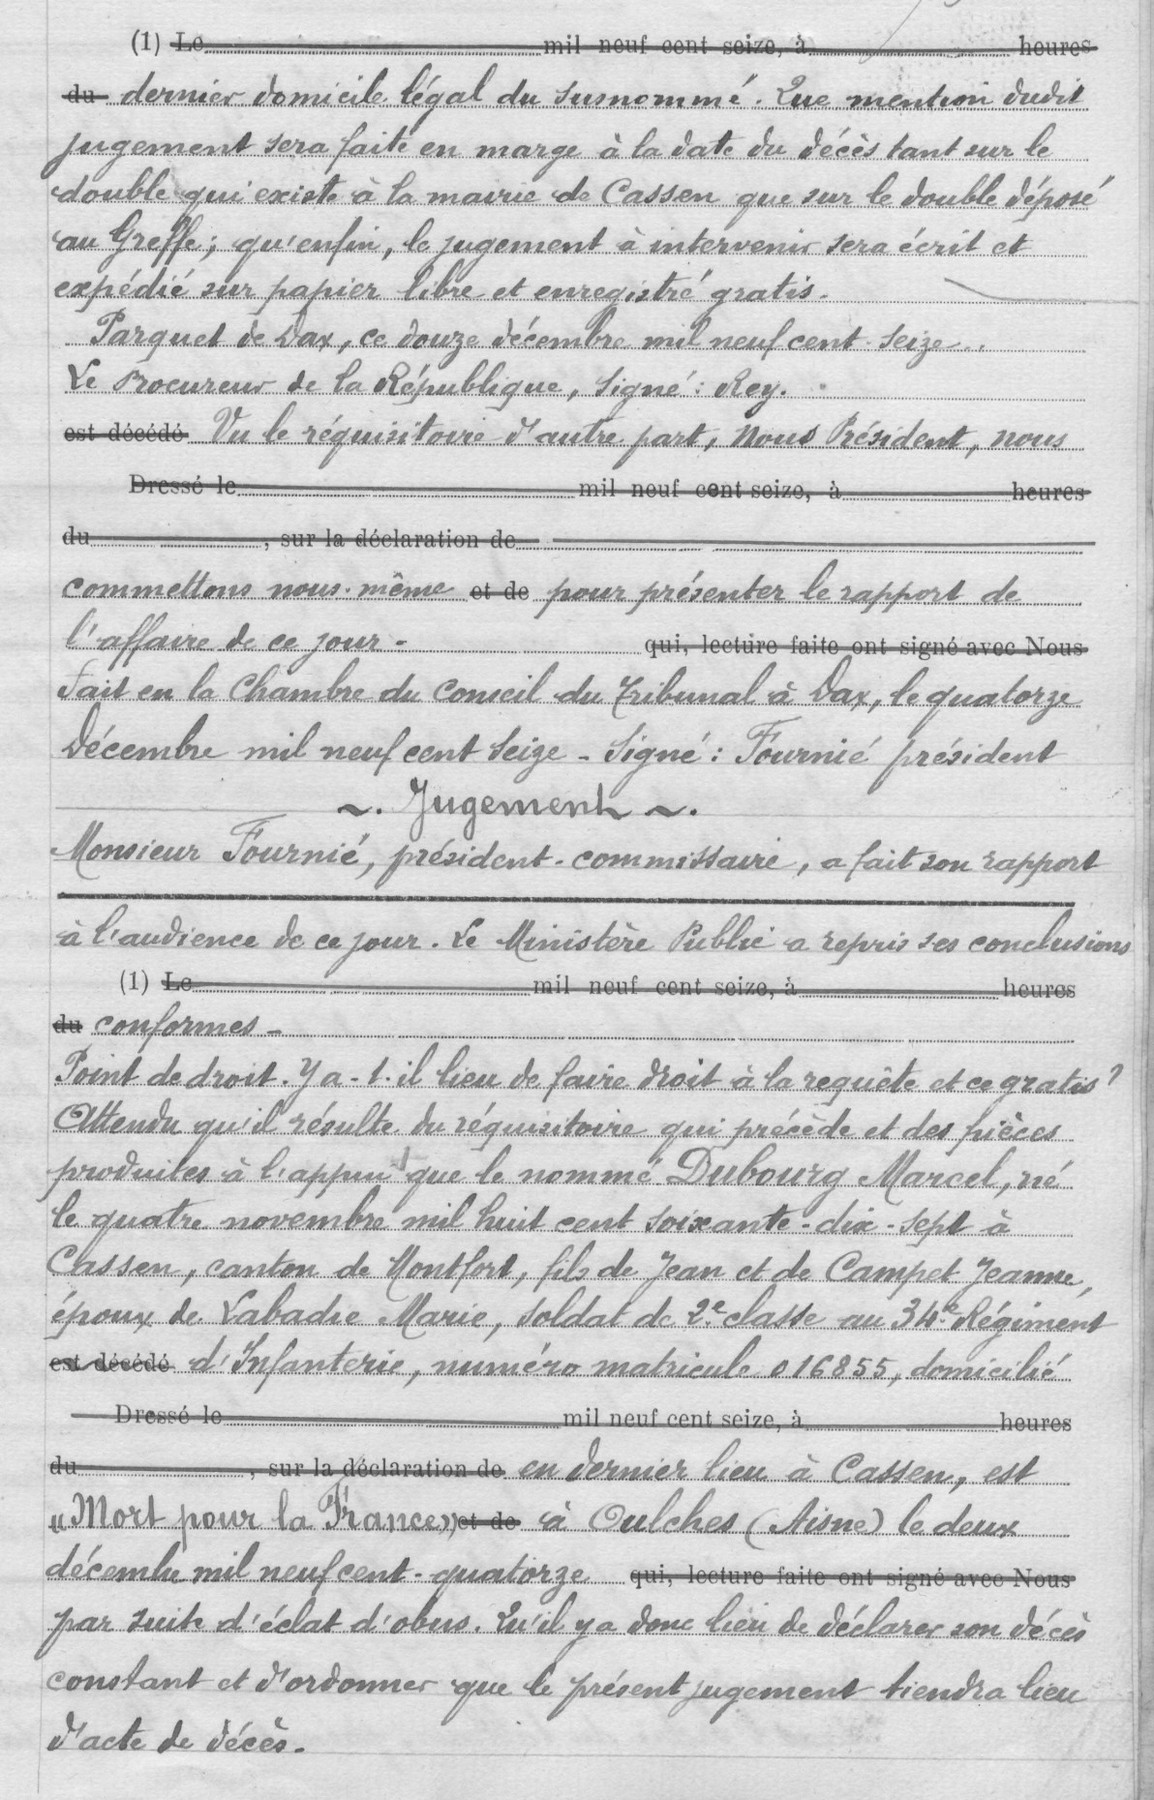 (1) Le mil neuf cent seize, à heures
du dernier domicile légal du susnommé. Que mention dudit
jugement sera faite en marge à la date du décès tant sur le
double qui existe à la mairie de Cassen que sur le double déposé
au Greffe; qu'enfin, le jugement à intervenir sera écrit et
expédié sur papier libre et enregistré gratis.
Parquet de Dax, ce douze décembre mil neuf cent seize..
Le Procureur de la République, signé: Rey.
est décédé Vu le réquisitoire d'autre part, Nous Président, nous
Dressé le mil neuf cent seize, à heures
du , sur la déclaration de
commettons nous-même et de pour présenter le rapport de
l'affaire de ce jour - qui, lecture faite ont signé avec Nous
Fait en la Chambre du Conseil du Tribunal à Dax, le quatorze
Décembre mil neuf cent seize - Signé: Fournié président
~. Jugement ~.
Monsieur Fournié, président-commissaire, a fait son rapport
à l'audience de ce jour. Le Ministère Public a repris ses conclusions
(1) Le mil neuf cent seize, à heures
du conformes -
Point de droit. Y a-t-il lieu de faire droit à la requête et ce gratis?
Attendu qu'il résulte du réquisitoire qui précède et des pièces
produites à l'appui que le nommé Dubourg Marcel, né
le quatre novembre mil huit cent soixante-dix-sept à
Cassen, canton de Montfort, fils de Jean et de Campet Jeanne,
époux de Labadie Marie, soldat de 2e classe au 34e Régiment
est décédé d'Infanterie, numéro matricule 016855, domicilié
Dressé le mil neuf cent seize, à heures
du , sur la déclaration de en dernier lieu à Cassen, est
«Mort pour la France» et de à Oulches (Aisne) le deux
décembre mil neuf cent-quatorze qui, lecture faite ont signé avec Nous
par suite d'éclat d'obus. Qu'il y a donc lieu de déclarer son décès
constant et d'ordonner que le présent jugement tiendra lieu
d'acte de décès.